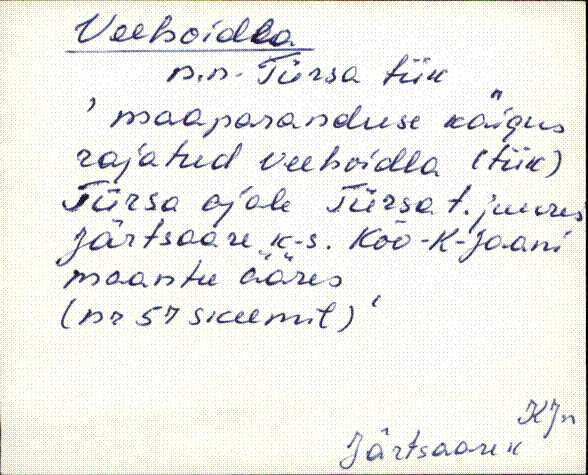 Veehoidla
n.n. Türsa tiik
' maaparanduse käigus
rajatud veehoidla (tiik)
Türsa ojale Türsa t. juures
Järtsaare k-s. Kõo-K-Jaani
maantee ääres
(nr 57 skeemil) '
KJn
Järtsaare k